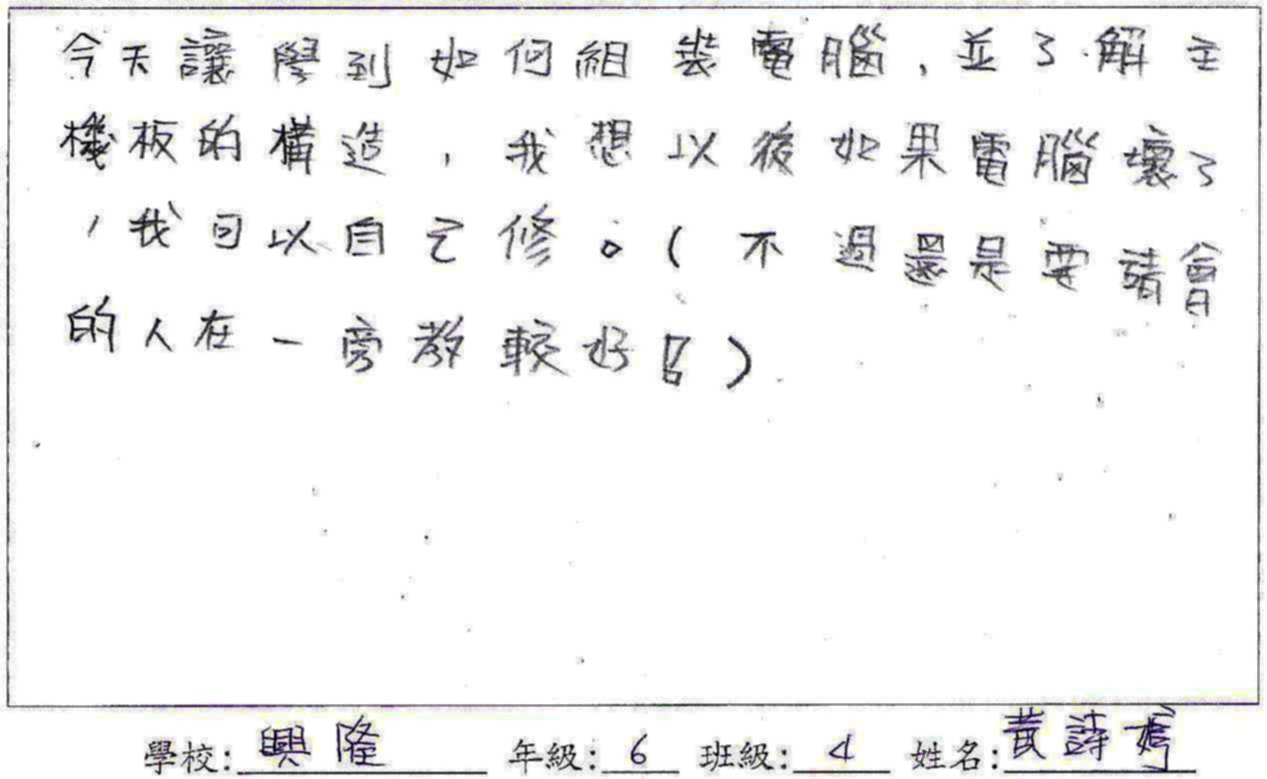 今天讓學到如何組裝電腦,並了解主
機板的構造,我想以後如果電腦壞了
,我可以自己修。(不過還是要請會
的人在一旁教較好!)
學校:興隆 年級:6 班級:4 姓名:黃詩婷